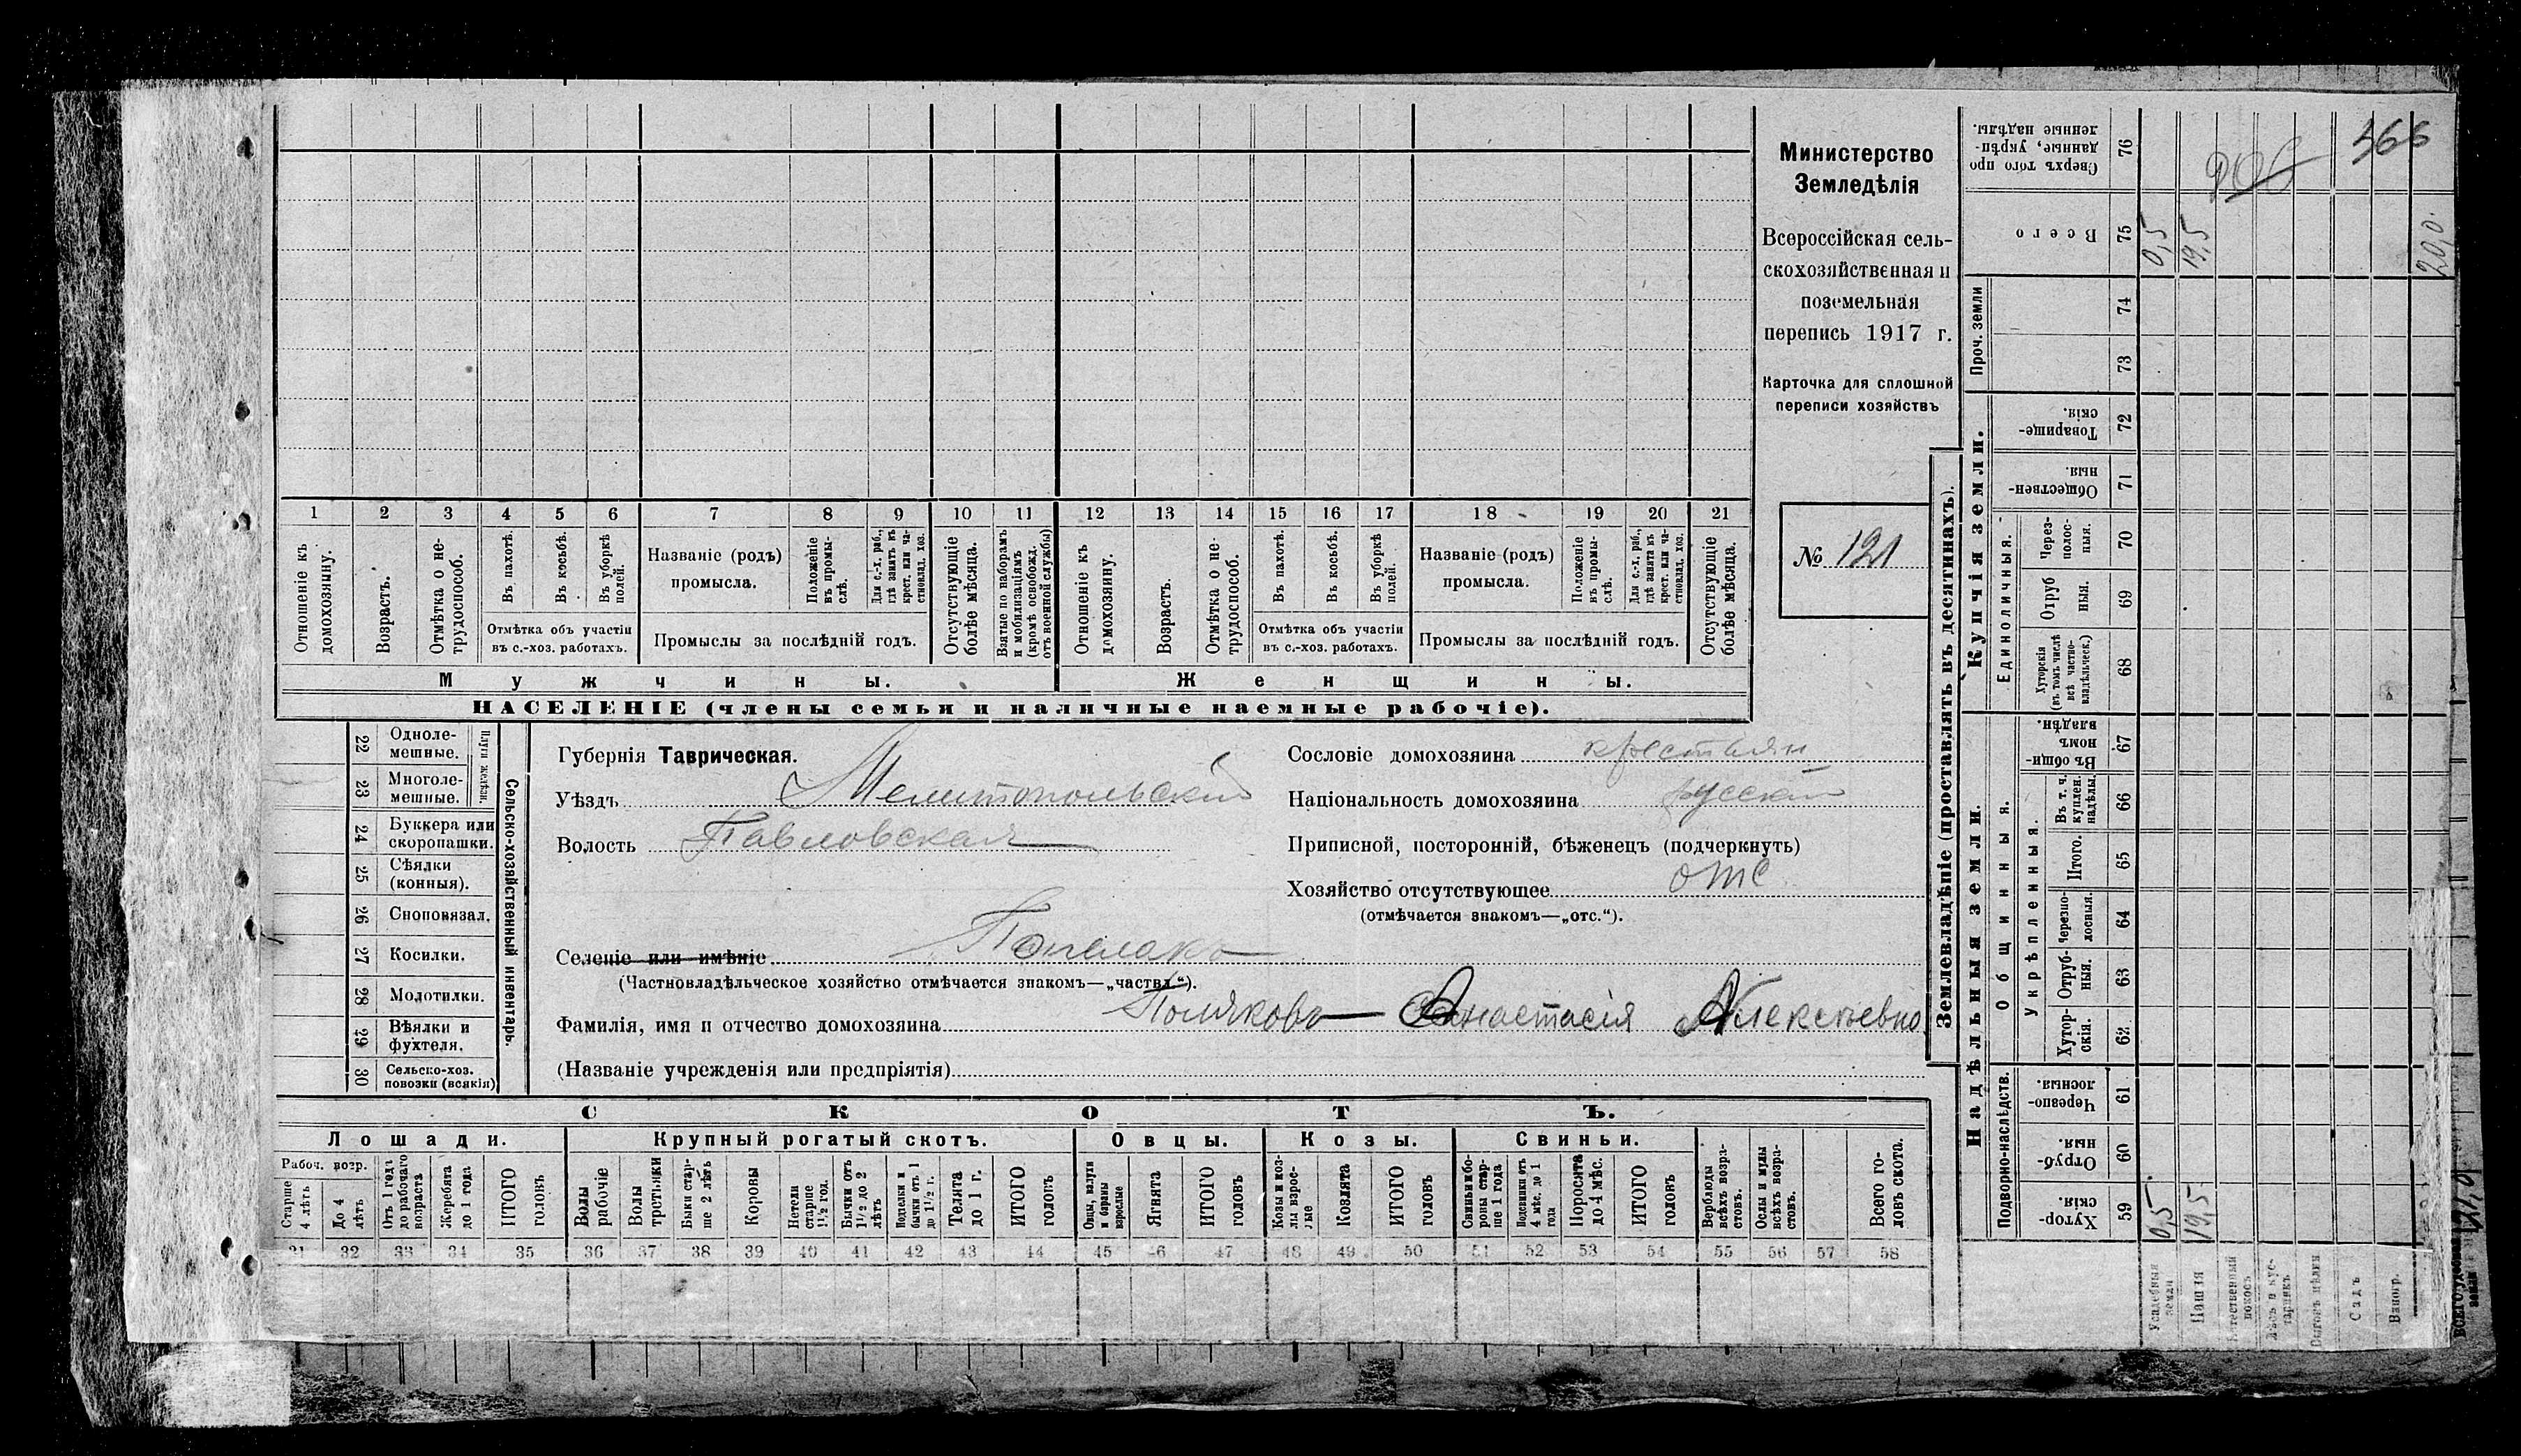 1 2 3 4 5 6 7 8 9 10 11 12 13 14 15 16 17 18 19 20 21
Отношеніе къ домохозяину.
Возрастъ.
Отмѣтка о не-трудоспособ.
Въ пахотѣ.
Въ косьбѣ.
Въ уборкѣ полей.
Отмѣтка объ участіи
въ с.-хоз. работахъ.
Названіе (родъ)
промысла.
Положеніе въ промы-слѣ.
Для с.-х. раб., гдѣ занятъ къ крест. или ча-стновлад. хоз.
Промыслы за послѣдній годъ.
Отсутствующіе болѣе мѣсяца.
Взятые по наборамъ и мобилизаціямъ (кромѣ освобожд. отъ военной службы)
Отношеніе къ домохозяину.
Возрастъ.
Отмѣтка о не-трудоспособ.
Въ пахотѣ.
Въ косьбѣ.
Въ уборкѣ полей.
Отмѣтка объ участіи
въ с.-хоз. работахъ.
Названіе (родъ)
промысла.
Положеніе въ промы-слѣ.
Для с.-х. раб., гдѣ занята къ крест. или ча-стновлад. хоз.
Промыслы за послѣдній годъ.
Отсутствующіе болѣе мѣсяца.
Мужчины.
Женщины.
НАСЕЛЕНІЕ (члены семьи и наличные наемные рабочіе).
Министерство
Земледѣлія
Всероссійская сель-
скохозяйственная и
поземельная
перепись 1917 г.
Карточка для сплошной
переписи хозяйствъ
№ 121
22 Однолемешные.
23 Многолемешные.
Плуги желѣзн.
24 Буккера или скоропашки.
25 Сѣялки (конныя).
26 Сноповязал.
27 Косилки.
28 Молотилки.
29 Вѣялки и фухтеля.
30 Сельско-хоз. повозки (всякія)
Сельско-хозяйственный инвентарь.
Губернія Таврическая.
Уѣздъ Мелитопольский
Волость Павловская
Селеніе или имѣніе
(Частновладѣльческое хозяйство отмѣчается знакомъ—„частвл.“).
Фамилія, имя и отчество домохозяина Полякова Анастасія Алексѣевна
(Названіе учрежденія или предпріятія)
Сословіе домохозяина крестьян
Національность домохозяина русский
Приписной, посторонній, бѣженецъ (подчеркнуть)
Хозяйство отсутствующее отс
(отмѣчается знакомъ—„отс.“).
СКОТЪ.
Лошади. Крупный рогатый скотъ. Овцы. Козы. Свиньи.
Рабоч. возр.
Старше 4 лѣтъ
До 4 лѣтъ
Отъ 1 года до рабочаго возраста
Жеребята до 1 года
ИТОГО головъ
Волы рабочіе
Волы третьяки
Быки стар-ше 2 лѣтъ
Коровы
Нетели старше 1½ год.
Бычки отъ 1½ до 2 лѣтъ
Подтелки и бычки отъ 1 до 1½ г.
Телята до 1 г.
ИТОГО головъ
Овцы, валухи и бараны взрослые
Ягнята
ИТОГО головъ
Козы и коз-лы взрос-лые
Козлята
ИТОГО головъ
Свиньи и бо-ровы стар-ше 1 года
Подсвинки отъ 4 мѣс. до 1 года
Поросята до 4 мѣс.
ИТОГО головъ
Верблюды всѣхъ возра-стовъ.
Ослы и мулы всѣхъ возра-стовъ.
Всего го-ловъ скота.
31 32 33 34 35 36 37 38 39 40 41 42 43 44 45 46 47 48 49 50 51 52 53 54 55 56 57 58
Землевладѣніе (проставлять въ десятинахъ).
Сверхъ того про данные, укрѣп-ленные надѣлы. 76
566
Всего 75 0,5 19,5 20,0
Проч. земли 74 73
Купчія земли.
Товарище-скія. 72
Обществен-ныя. 71
Единоличныя.
Через-полос-ныя. 70
Отруб ныя. 69
Хуторскія (въ томъ числѣ всѣ частно-владѣльческ.) 68
Надѣльныя земли.
Общинныя.
Въ общи-номъ владѣн. 67
Укрѣпленныя.
Въ т. ч. куплен. надѣлы. 66
Итого. 65
Черезпо-лосныя. 64
Отруб-ныя. 63
Хутор-скія. 62
Подворно-наслѣдств.
Черезпо-лосныя. 61
Отруб-ныя. 60
Хутор-скія. 59 0,5 19,5
Усадебныя земли
Пашня
Естественный покосъ
Садъ
Виногр.